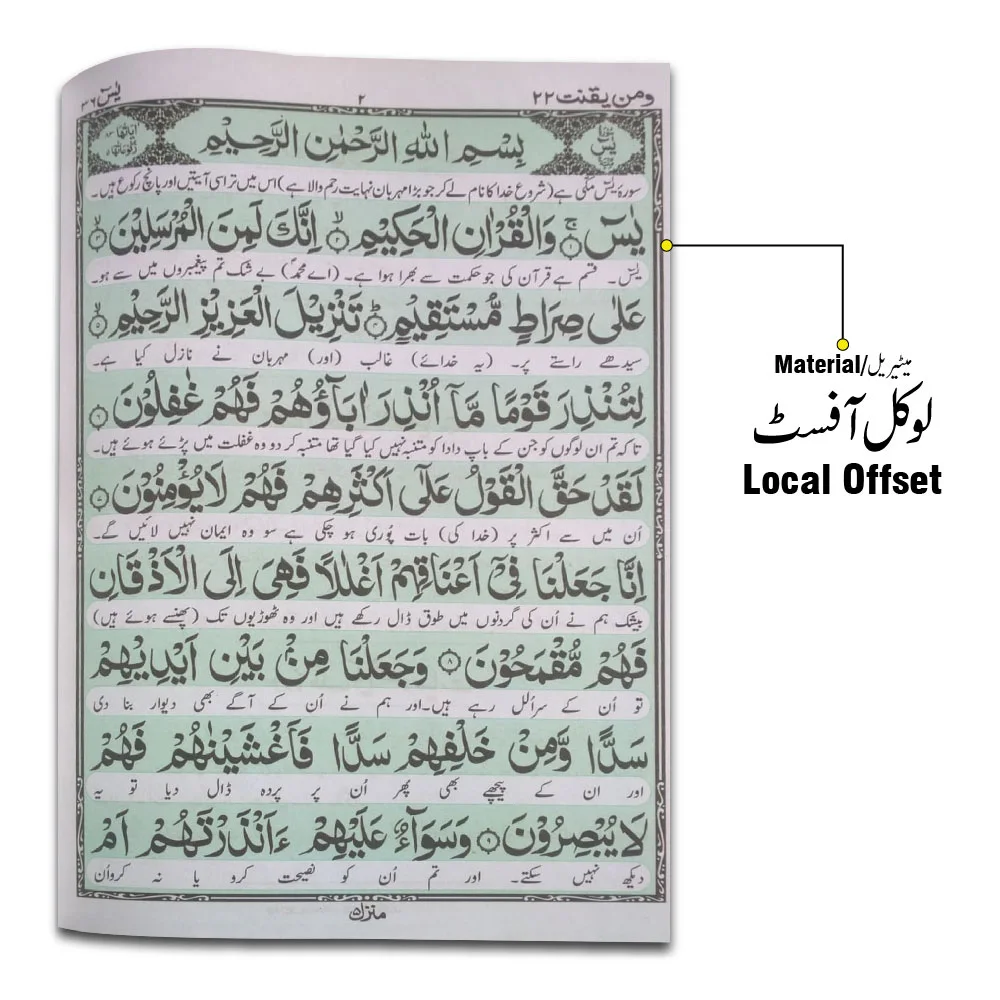 ومن یقنت ۲۲
۲
یٰسٓ ۳۶
بِسْمِ اللّٰهِ الرَّحْمٰنِ الرَّحِیْمِ
سورہ یٰسٓ مکّی ہے (شروع خدا کا نام لے کر جو بڑا مہربان نہایت رحم والا ہے) اس میں تراسی آیتیں اور پانچ رکوع ہیں۔
یٰسٓ ۚ﴿۱﴾ وَالْقُرْاٰنِ الْحَكِیْمِ ۙ﴿۲﴾ اِنَّكَ لَمِنَ الْمُرْسَلِیْنَ ۙ﴿۳﴾
یٰسٓ۔ قسم ہے قرآن کی جو حکمت سے بھرا ہوا ہے۔ (اے محمدؐ) بے شک تم پیغمبروں میں سے ہو۔
عَلٰی صِرَاطٍ مُّسْتَقِیْمٍ ؕ﴿۴﴾ تَنْزِیْلَ الْعَزِیْزِ الرَّحِیْمِ ۙ﴿۵﴾
سیدھے راستے پر۔ (یہ خدائے) غالب (اور) مہربان نے نازل کیا ہے۔
لِتُنْذِرَ قَوْمًا مَّاۤ اُنْذِرَ اٰبَآؤُهُمْ فَهُمْ غٰفِلُوْنَ ﴿۶﴾
تاکہ تم ان لوگوں کو جن کے باپ دادا کو متنبہ نہیں کیا گیا تھا متنبہ کر دو وہ غفلت میں پڑے ہوئے ہیں۔
لَقَدْ حَقَّ الْقَوْلُ عَلٰۤی اَكْثَرِهِمْ فَهُمْ لَا یُؤْمِنُوْنَ ﴿۷﴾
اُن میں سے اکثر پر (خدا کی) بات پُوری ہو چکی ہے سو وہ ایمان نہیں لائیں گے۔
اِنَّا جَعَلْنَا فِیْۤ اَعْنَاقِهِمْ اَغْلٰلًا فَهِیَ اِلَی الْاَذْقَانِ
بیشک ہم نے اُن کی گردنوں میں طوق ڈال رکھے ہیں اور وہ ٹھوڑیوں تک (پھنسے ہوئے ہیں)
فَهُمْ مُّقْمَحُوْنَ ﴿۸﴾ وَجَعَلْنَا مِنْۢ بَیْنِ اَیْدِیْهِمْ
تو اُن کے سر اُلل رہے ہیں۔ اور ہم نے اُن کے آگے بھی دیوار بنا دی
سَدًّا وَّمِنْ خَلْفِهِمْ سَدًّا فَاَغْشَیْنٰهُمْ فَهُمْ
اور ان کے پیچھے بھی پھر اُن پر پردہ ڈال دیا تو یہ
لَا یُبْصِرُوْنَ ﴿۹﴾ وَسَوَآءٌ عَلَیْهِمْ ءَاَنْذَرْتَهُمْ اَمْ
دیکھ نہیں سکتے۔ اور تم اُن کو نصیحت کرو یا نہ کرو اُن
منزل ۵
Material/میٹیریل
لوکل آفسٹ
Local Offset